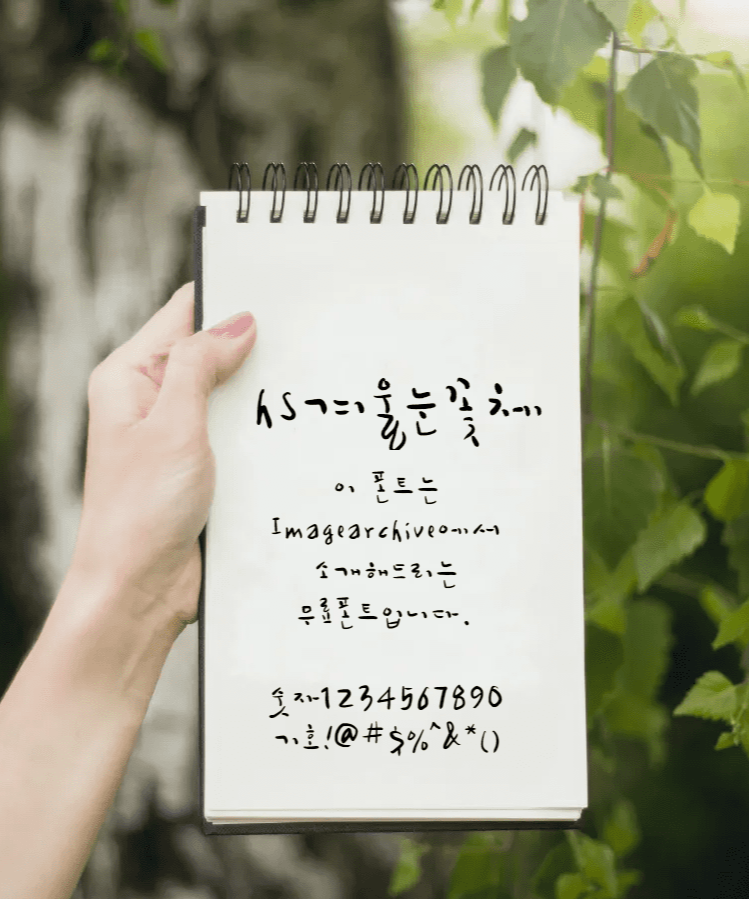 HS겨울눈꽃체
이 폰트는
Imagearchive에서
소개해드리는
무료폰트입니다.
숫자1234567890
기호!@#$%^&*()